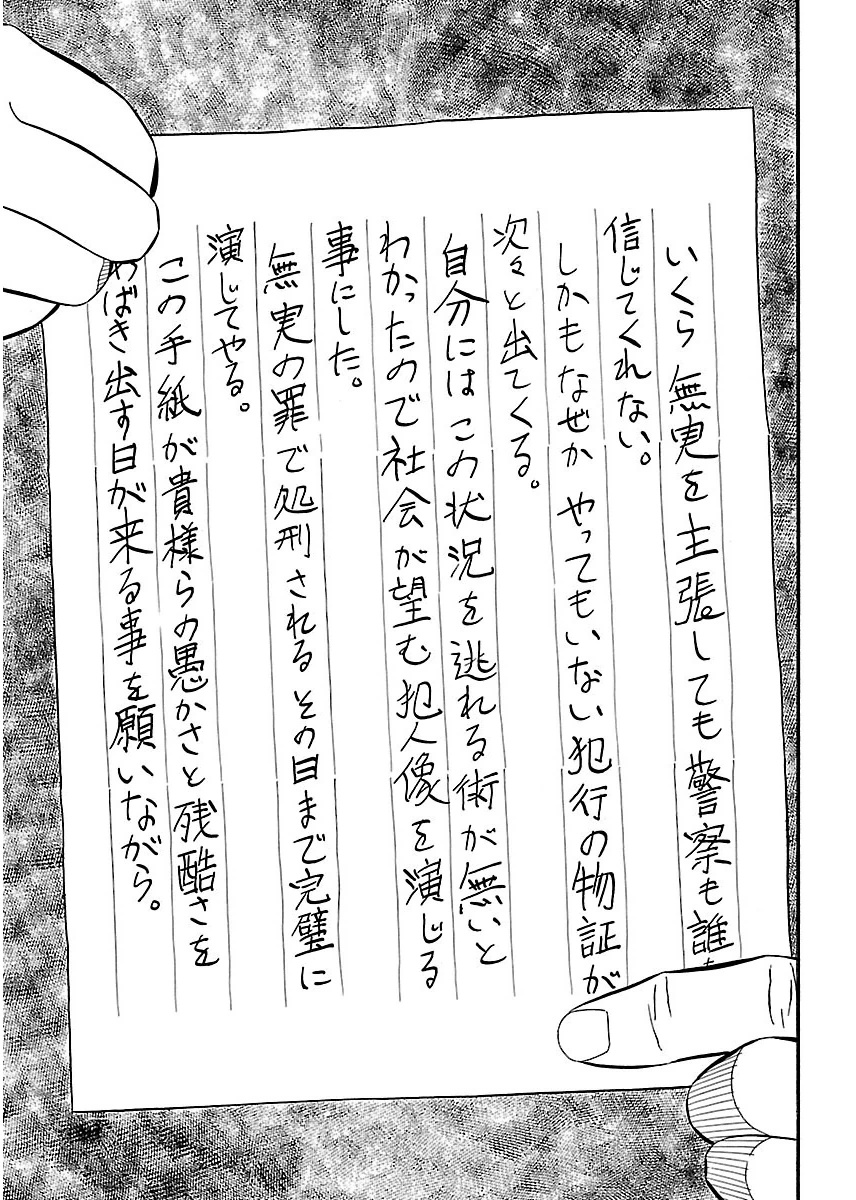 いくら無実を主張しても警察も誰も
信じてくれない。
しかもなぜかやってもいない犯行の物証が
次々と出てくる。
自分にはこの状況を逃れる術が無いと
わかったので社会が望む犯人像を演じる
事にした。
無実の罪で処刑されるその日まで完璧に
演じてやる。
この手紙が貴様らの愚かさと残酷さを
あばき出す日が来る事を願いながら。